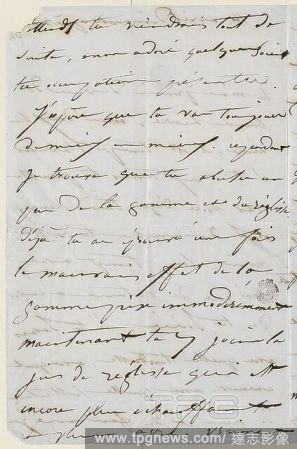 tu viendrais tout de
suite, mon adoré quelque soient
tes occupations présentes.
J'espère que tu vas toujours
de mieux en mieux. cependant
je trouve que tu abuse un
peu de la gomme et du réglisse
déjà tu as éprouvé une fois
le mauvais effet de la
gomme prise immodérément
maintenant tu y joins le
jus de réglisse qui est
encore plus échauffant
et plus
www.tpgnews.com/ 達志影像